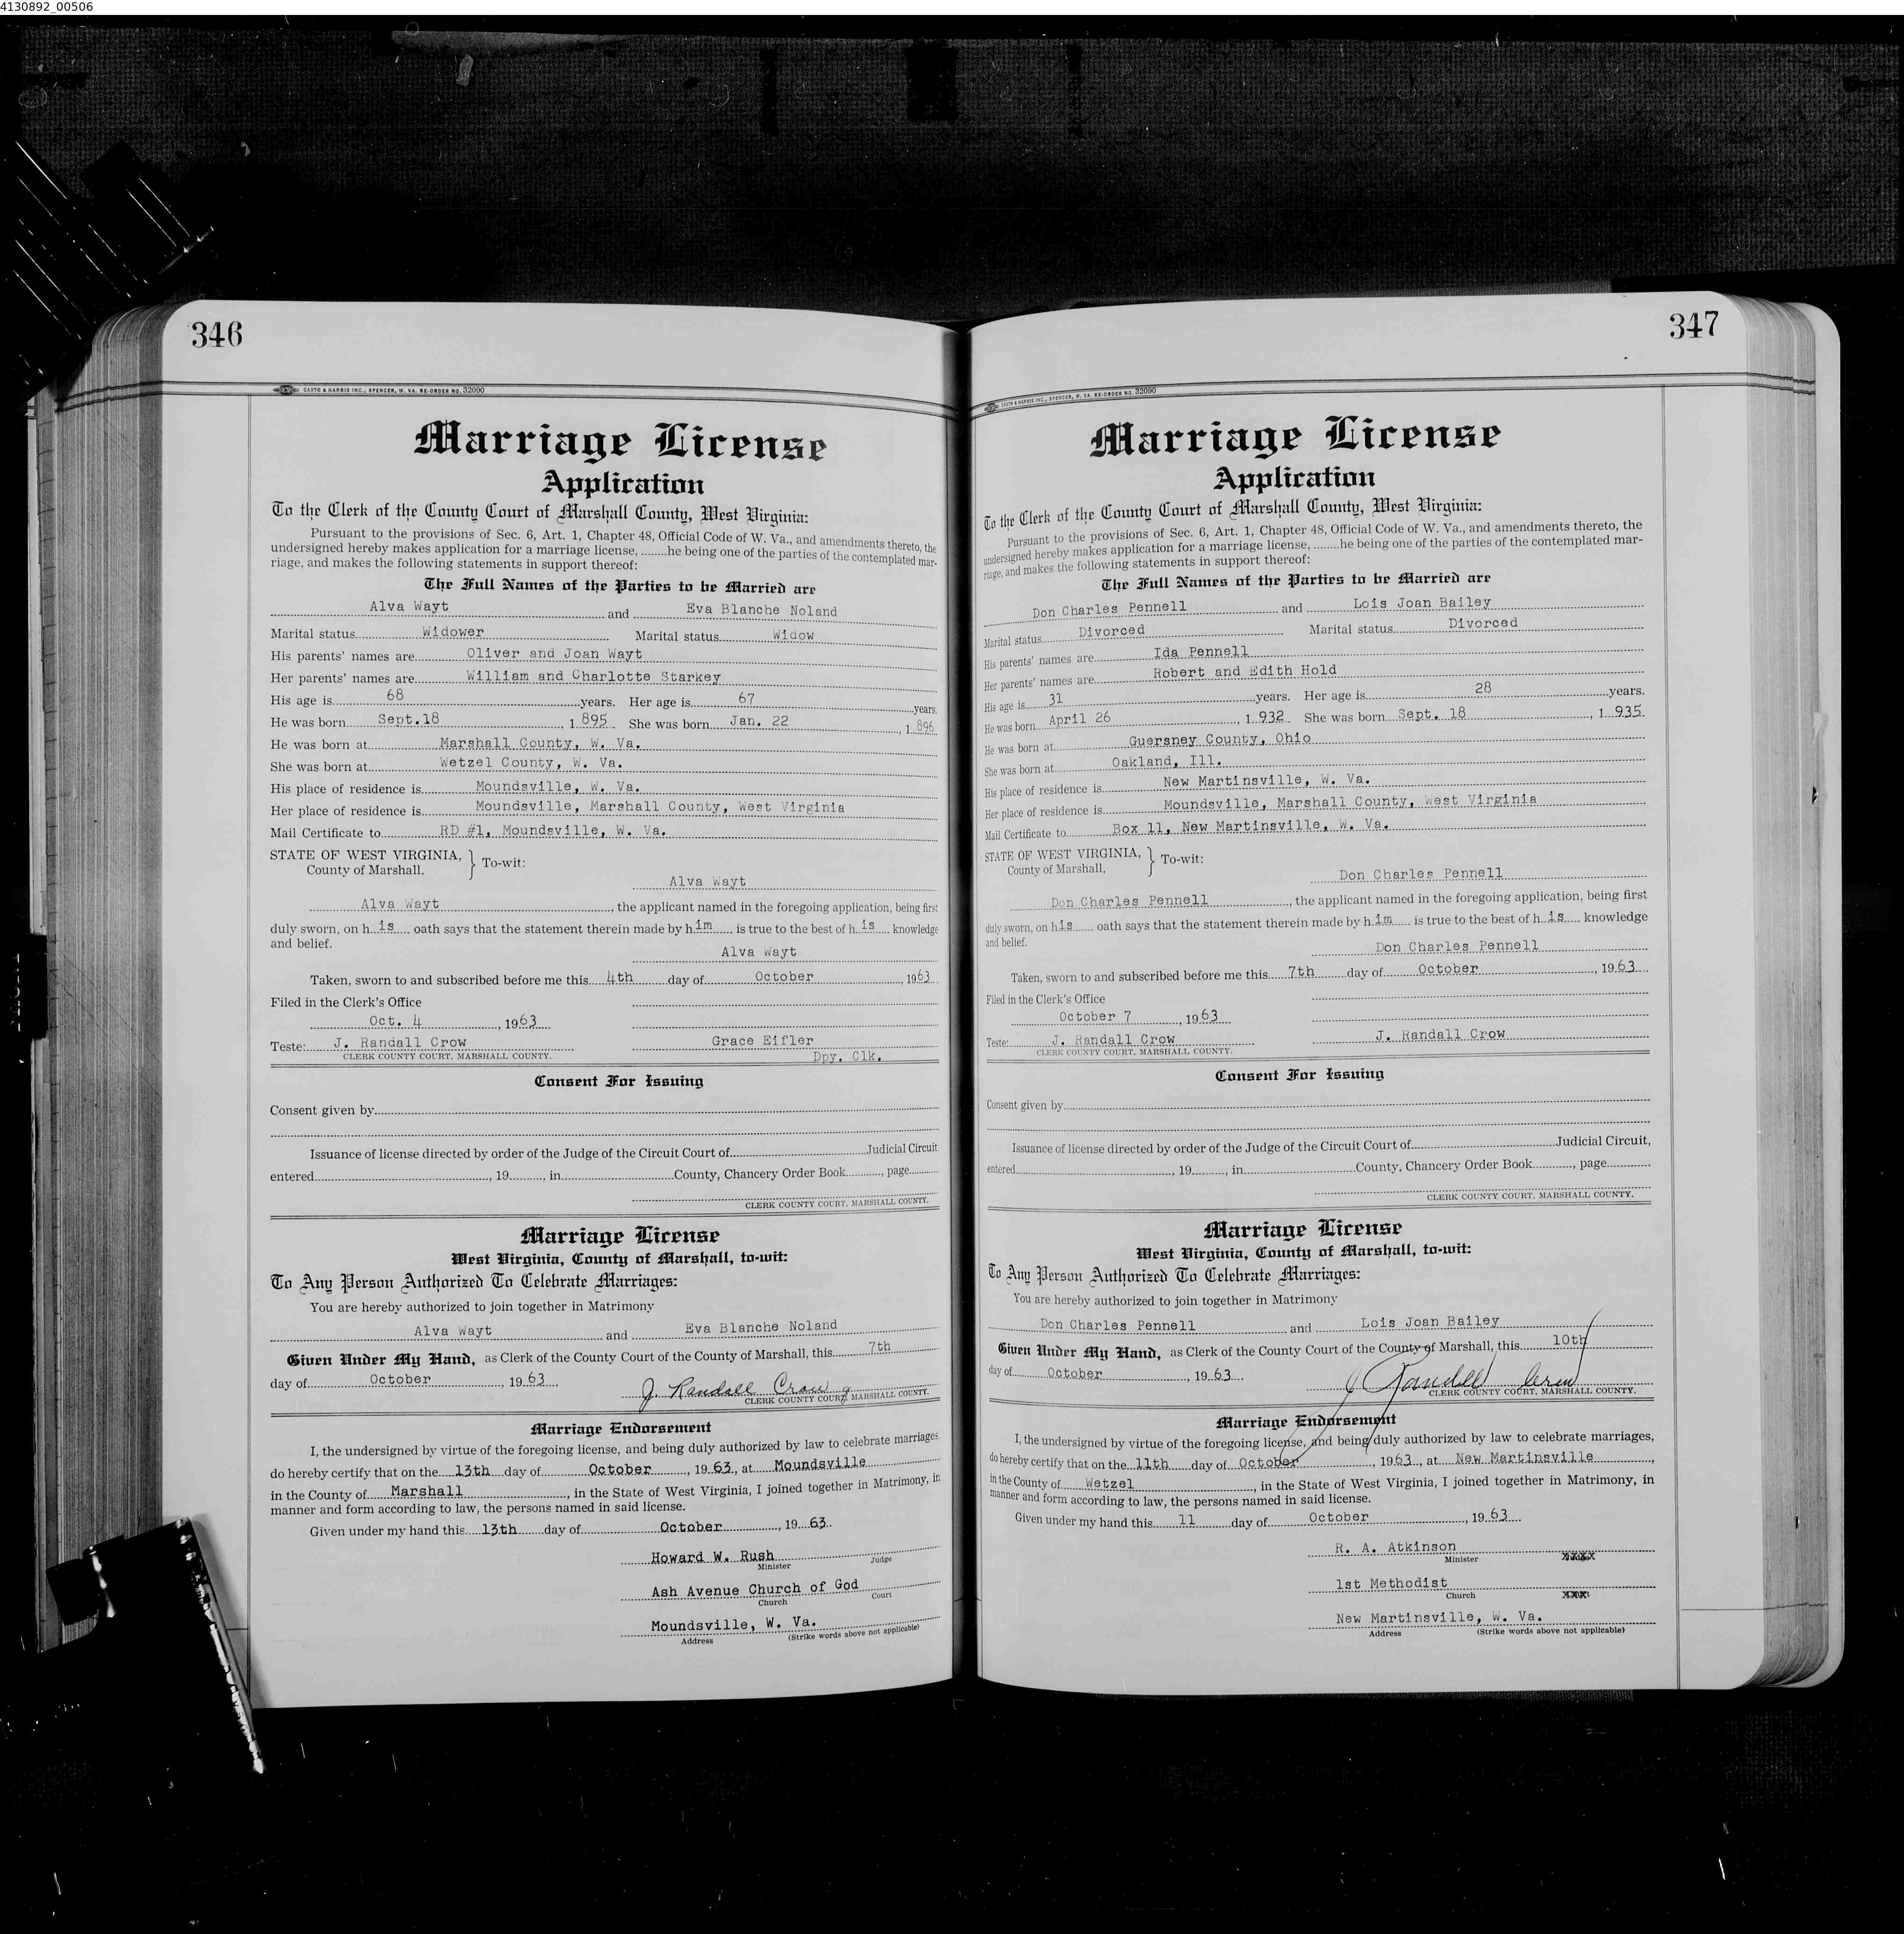 4130892_00506
346
CASTO & HARRIS INC., SPENCER, W. VA. RE-ORDER NO. 32090
Marriage License
Application
To the Clerk of the County Court of Marshall County, West Virginia:
Pursuant to the provisions of Sec. 6, Art. 1, Chapter 48, Official Code of W. Va., and amendments thereto, the
undersigned hereby makes application for a marriage license, ........he being one of the parties of the contemplated mar-
riage, and makes the following statements in support thereof:
The Full Names of the Parties to be Married are
Alva Wayt and Eva Blanche Noland
Marital status Widower Marital status Widow
His parents' names are Oliver and Joan Wayt
Her parents' names are William and Charlotte Starkey
His age is 68 years. Her age is 67 years.
He was born Sept.18, 1895 She was born Jan. 22, 1896
He was born at Marshall County, W. Va.
She was born at Wetzel County, W. Va.
His place of residence is Moundsville, W. Va.
Her place of residence is Moundsville, Marshall County, West Virginia
Mail Certificate to RD #1, Moundsville, W. Va.
STATE OF WEST VIRGINIA, } To-wit:
County of Marshall.
Alva Wayt
Alva Wayt, the applicant named in the foregoing application, being first
duly sworn, on his oath says that the statement therein made by him is true to the best of his knowledge
and belief.
Alva Wayt
Taken, sworn to and subscribed before me this 4th day of October 1963
Filed in the Clerk's Office
Oct. 4, 1963
Teste: J. Randall Crow Grace Eifler
CLERK COUNTY COURT, MARSHALL COUNTY. Dpy. Clk.
Consent For Issuing
Consent given by
Issuance of license directed by order of the Judge of the Circuit Court of Judicial Circuit
entered, 19, in County, Chancery Order Book, page
CLERK COUNTY COURT, MARSHALL COUNTY.
Marriage License
West Virginia, County of Marshall, to-wit:
To Any Person Authorized To Celebrate Marriages:
You are hereby authorized to join together in Matrimony
Alva Wayt and Eva Blanche Noland
Given Under My Hand, as Clerk of the County Court of the County of Marshall, this 7th
day of October, 1963
J. Randall Crow
CLERK COUNTY COURT, MARSHALL COUNTY.
Marriage Endorsement
I, the undersigned by virtue of the foregoing license, and being duly authorized by law to celebrate marriages
do hereby certify that on the 13th day of October, 1963, at Moundsville
in the County of Marshall, in the State of West Virginia, I joined together in Matrimony, in
manner and form according to law, the persons named in said license.
Given under my hand this 13th day of October, 1963.
Howard W. Rush
Minister Judge
Ash Avenue Church of God
Church Court
Moundsville, W. Va.
Address (Strike words above not applicable)
347
CASTO & HARRIS INC., SPENCER, W. VA. RE-ORDER NO. 32090
Marriage License
Application
To the Clerk of the County Court of Marshall County, West Virginia:
Pursuant to the provisions of Sec. 6, Art. 1, Chapter 48, Official Code of W. Va., and amendments thereto, the
undersigned hereby makes application for a marriage license, ........he being one of the parties of the contemplated mar-
riage, and makes the following statements in support thereof:
The Full Names of the Parties to be Married are
Don Charles Pennell and Lois Joan Bailey
Marital status Divorced Marital status Divorced
His parents' names are Ida Pennell
Her parents' names are Robert and Edith Hold
His age is 31 years. Her age is 28 years.
He was born April 26, 1932 She was born Sept. 18, 1935
He was born at Guersney County, Ohio
She was born at Oakland, Ill.
His place of residence is New Martinsville, W. Va.
Her place of residence is Moundsville, Marshall County, West Virginia
Mail Certificate to Box 11, New Martinsville, W. Va.
STATE OF WEST VIRGINIA, } To-wit:
County of Marshall,
Don Charles Pennell
Don Charles Pennell, the applicant named in the foregoing application, being first
duly sworn, on his oath says that the statement therein made by him is true to the best of his knowledge
and belief.
Don Charles Pennell
Taken, sworn to and subscribed before me this 7th day of October, 1963
Filed in the Clerk's Office
October 7, 1963
Teste: J. Randall Crow J. Randall Crow
CLERK COUNTY COURT, MARSHALL COUNTY.
Consent For Issuing
Consent given by
Issuance of license directed by order of the Judge of the Circuit Court of Judicial Circuit,
entered, 19, in County, Chancery Order Book, page
CLERK COUNTY COURT, MARSHALL COUNTY.
Marriage License
West Virginia, County of Marshall, to-wit:
To Any Person Authorized To Celebrate Marriages:
You are hereby authorized to join together in Matrimony
Don Charles Pennell and Lois Joan Bailey
Given Under My Hand, as Clerk of the County Court of the County of Marshall, this 10th
day of October, 1963
J Randall Crow
CLERK COUNTY COURT, MARSHALL COUNTY.
Marriage Endorsement
I, the undersigned by virtue of the foregoing license, and being duly authorized by law to celebrate marriages,
do hereby certify that on the 11th day of October, 1963, at New Martinsville,
in the County of Wetzel, in the State of West Virginia, I joined together in Matrimony, in
manner and form according to law, the persons named in said license.
Given under my hand this 11 day of October, 1963
R. A. Atkinson
Minister
1st Methodist
Church
New Martinsville, W. Va.
Address (Strike words above not applicable)